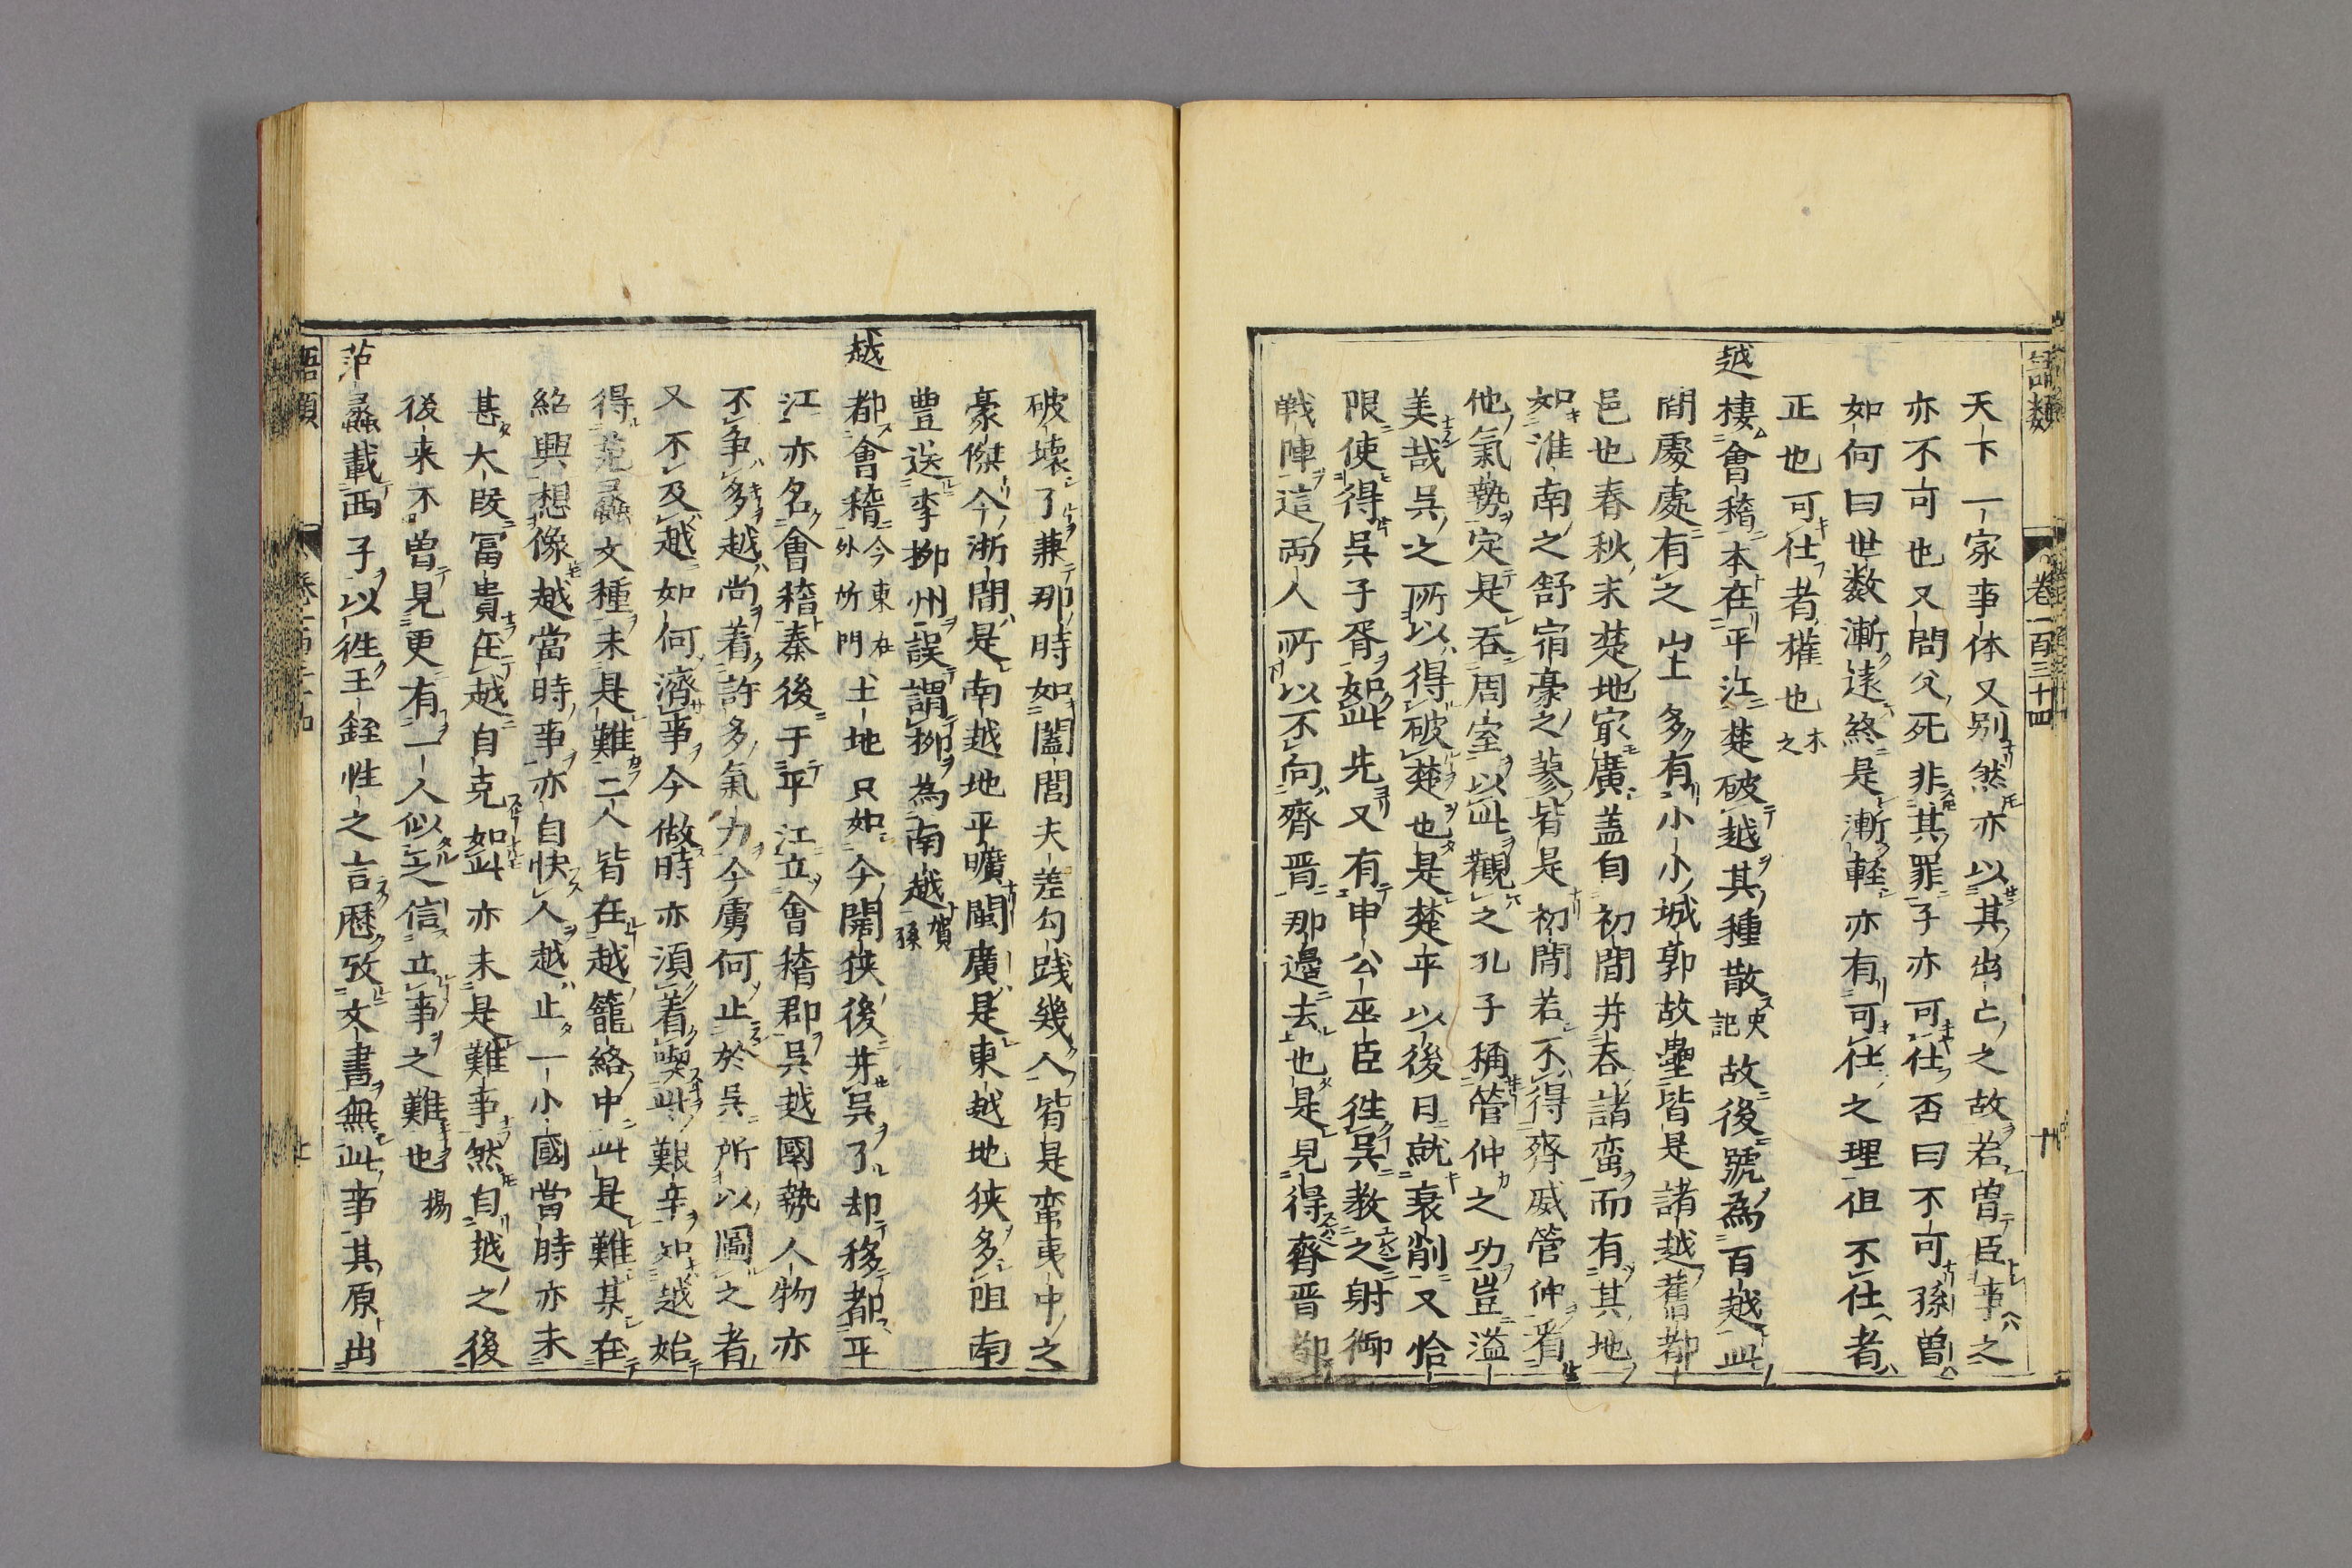 語類 卷一百三十四 十
天下一家事体又別然亦以其出亡之故若曽臣事之
亦不可也又問父死非其罪子亦可仕否曰不可孫曽
如何曰世数漸遠終是漸軽亦有可仕之理但不仕者
正也可仕者權也木之
越棲會稽本在平江楚破越其種散史記故後號為百越此
間處處有之山上多有小小城郭故壘皆是諸越舊都
邑也春秋末楚地最廣盖自初間并呑諸蛮而有其地
如淮南之舒宿豪之蓼皆是初間若不得齊威管仲看
他氣勢定是呑周室以此觀之孔子稱管仲之功豈溢
美哉呉之所以得破楚也是楚平以後日就衰削又恰
限使得呉子胥如此先又有申公巫臣徃呉教之射御
戦陣這両人所以不向齊晋那邉去也是見得齊晋都
破壊了兼那時如闔閭夫差勾践幾人皆是蛮夷中之
豪傑今浙間是南越地平曠閩廣是東越地狭多阻南
豊送李柳州誤謂柳為南越賀孫
越都會稽今東在外所門土地只如今闊狭後并呉了却移都平
江亦名會稽秦後于平江立會稽郡呉越國勢人物亦
不争多越尚着許多氣力今虜何止於呉所以圖之者
又不及越如何濟事今做時亦湏着喫此艱辛如越始
得范蠡文種未是難二人皆在越籠絡中此是難某在
紹興想像越當時事亦自快人越止一小國當時亦未
甚大段冨貴在越自克如此亦未是難事然自越之後
後来不曽見更有一人似之信立事之難也揚
范蠡載西子以徃王銍性之言歴攷文書無此事其原出
語類